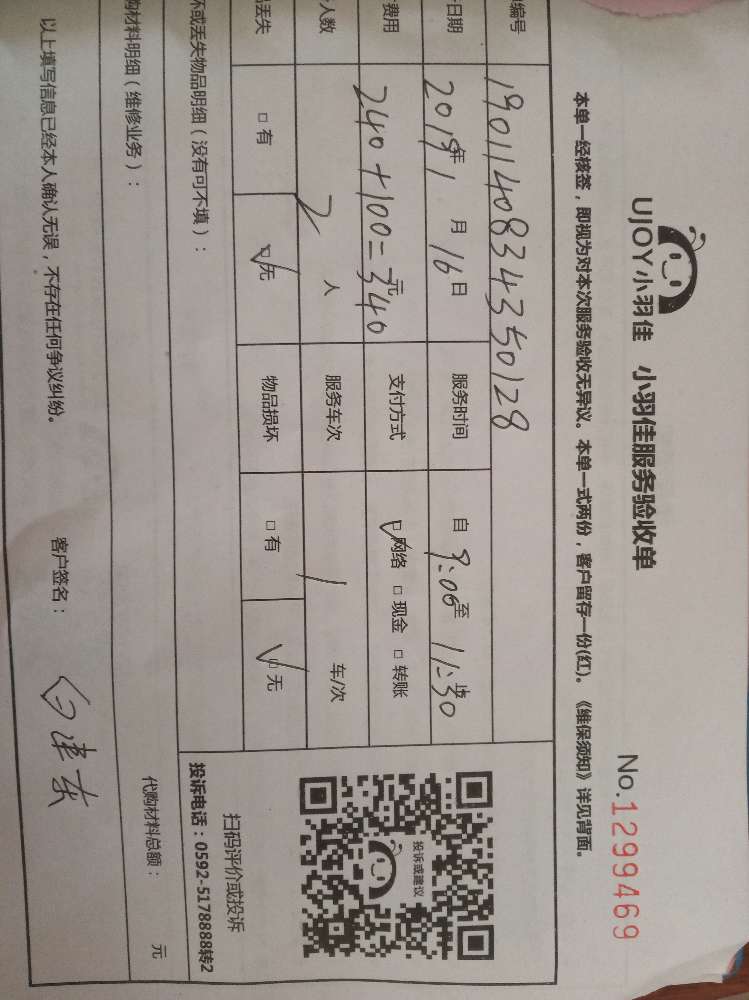 UJOY小羽佳 小羽佳服务验收单
No.1299469
本单一经核签，即视为对本次服务验收无异议。本单一式两份，客户留存一份(红)。《维保须知》详见背面。
编号 1901140834350128
日期 2019年1月16日 服务时间 自9:06至11:30
费用 240+100=340元 支付方式 ☑网络 □现金 □转账
人数 2人 服务车次 1车/次
丢失 □有 ☑无 物品损坏 □有 ☑无
坏或丢失物品明细（没有可不填）：
投诉或建议
扫码评价或投诉
投诉电话：0592-5178888转2
购材料明细（维修业务）：
代购材料总额： 元
以上填写信息已经本人确认无误，不存在任何争议纠纷。 客户签名：